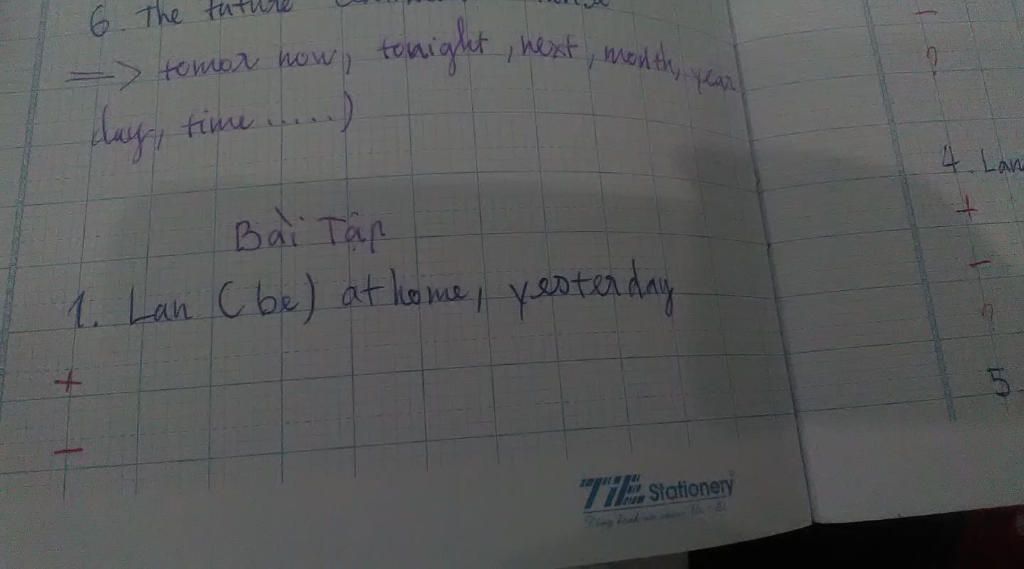 6. The future
=> tomor now, tonight, next, month, year
day, time.....)
Bài Tập
1. Lan (be) at home, yesterday
+
-
TiE Stationery
-
?
4. Lan
+
-
?
5.